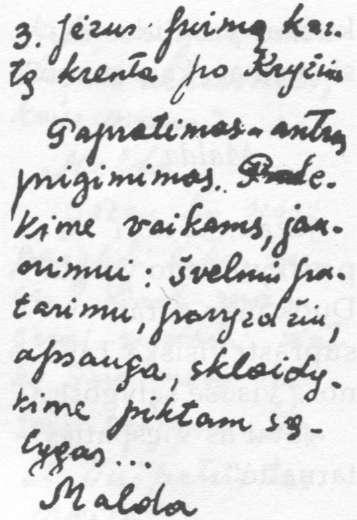 3. Jėzus pirmą kar-
tą krenta po Kryžiu
Papratimas - antras
prigimimas. Padė-
kime vaikams, jau-
nimui: švelniu pa-
tarimu, pavyzdžiu,
apsauga, sklaidy-
kime piktam są-
lygas...
Malda